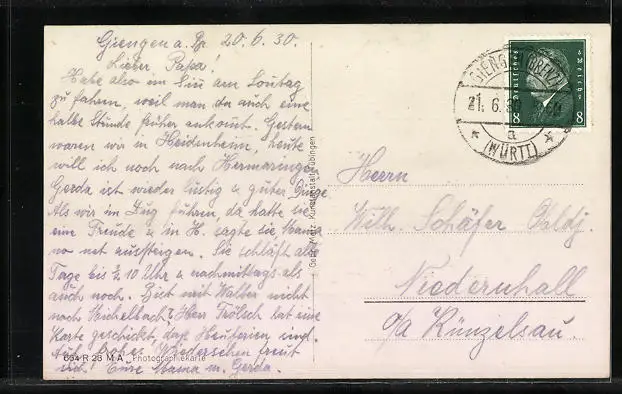 Giengen a. Bz. 20.6.30.
Lieber Papa!
Habe also im Sinn am Sontag
zu fahren, weil man da auch eine
halbe Stunde früher ankomt. Gestern
waren wir in Heidenheim, heute
will ich noch nach Hermaringen
Gerda ist wieder lustig & guter Dinge
Als wir im Zug fuhren, da hatte sie
eine Freude & in H. sagte sie, Mama
no net aussteigen. Sie schläft alle
Tage bis ½ 10 Uhr & nachmittags als
auch noch. Bist mit Walter nicht
nach Michelbach? Herr Frölsch hat eine
Karte geschickt, daß Heuferien sind.
Auf frohes Wiedersehen freut
sich Eure Mama m. Gerda.
654 R 23 M A Photographiekarte
Gebr. Metz, Kunstanstalt, Tübingen
Deutsches Reich
8 8
GIENGEN (BRENZ)
21.6.30
a
* (WÜRTT) *
Herrn
Wilh. Schäfer
Niedernhall
o/a Künzelsau.